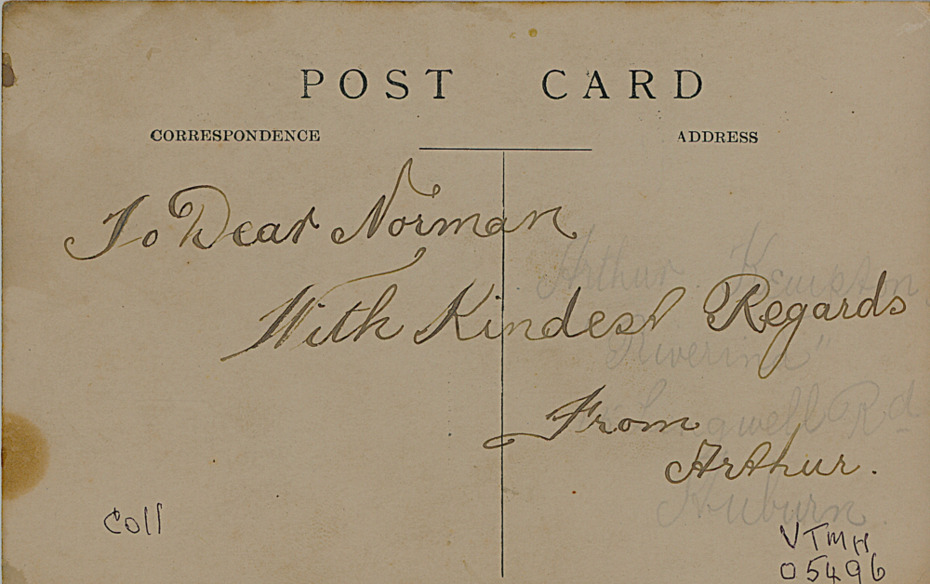 POST CARD
CORRESPONDENCE
ADDRESS
To Dear Norman
With Kindest Regards
From
Arthur.
Arthur. Kempton
Riverina"
Rd
Auburn
Coll
VTMH
05496